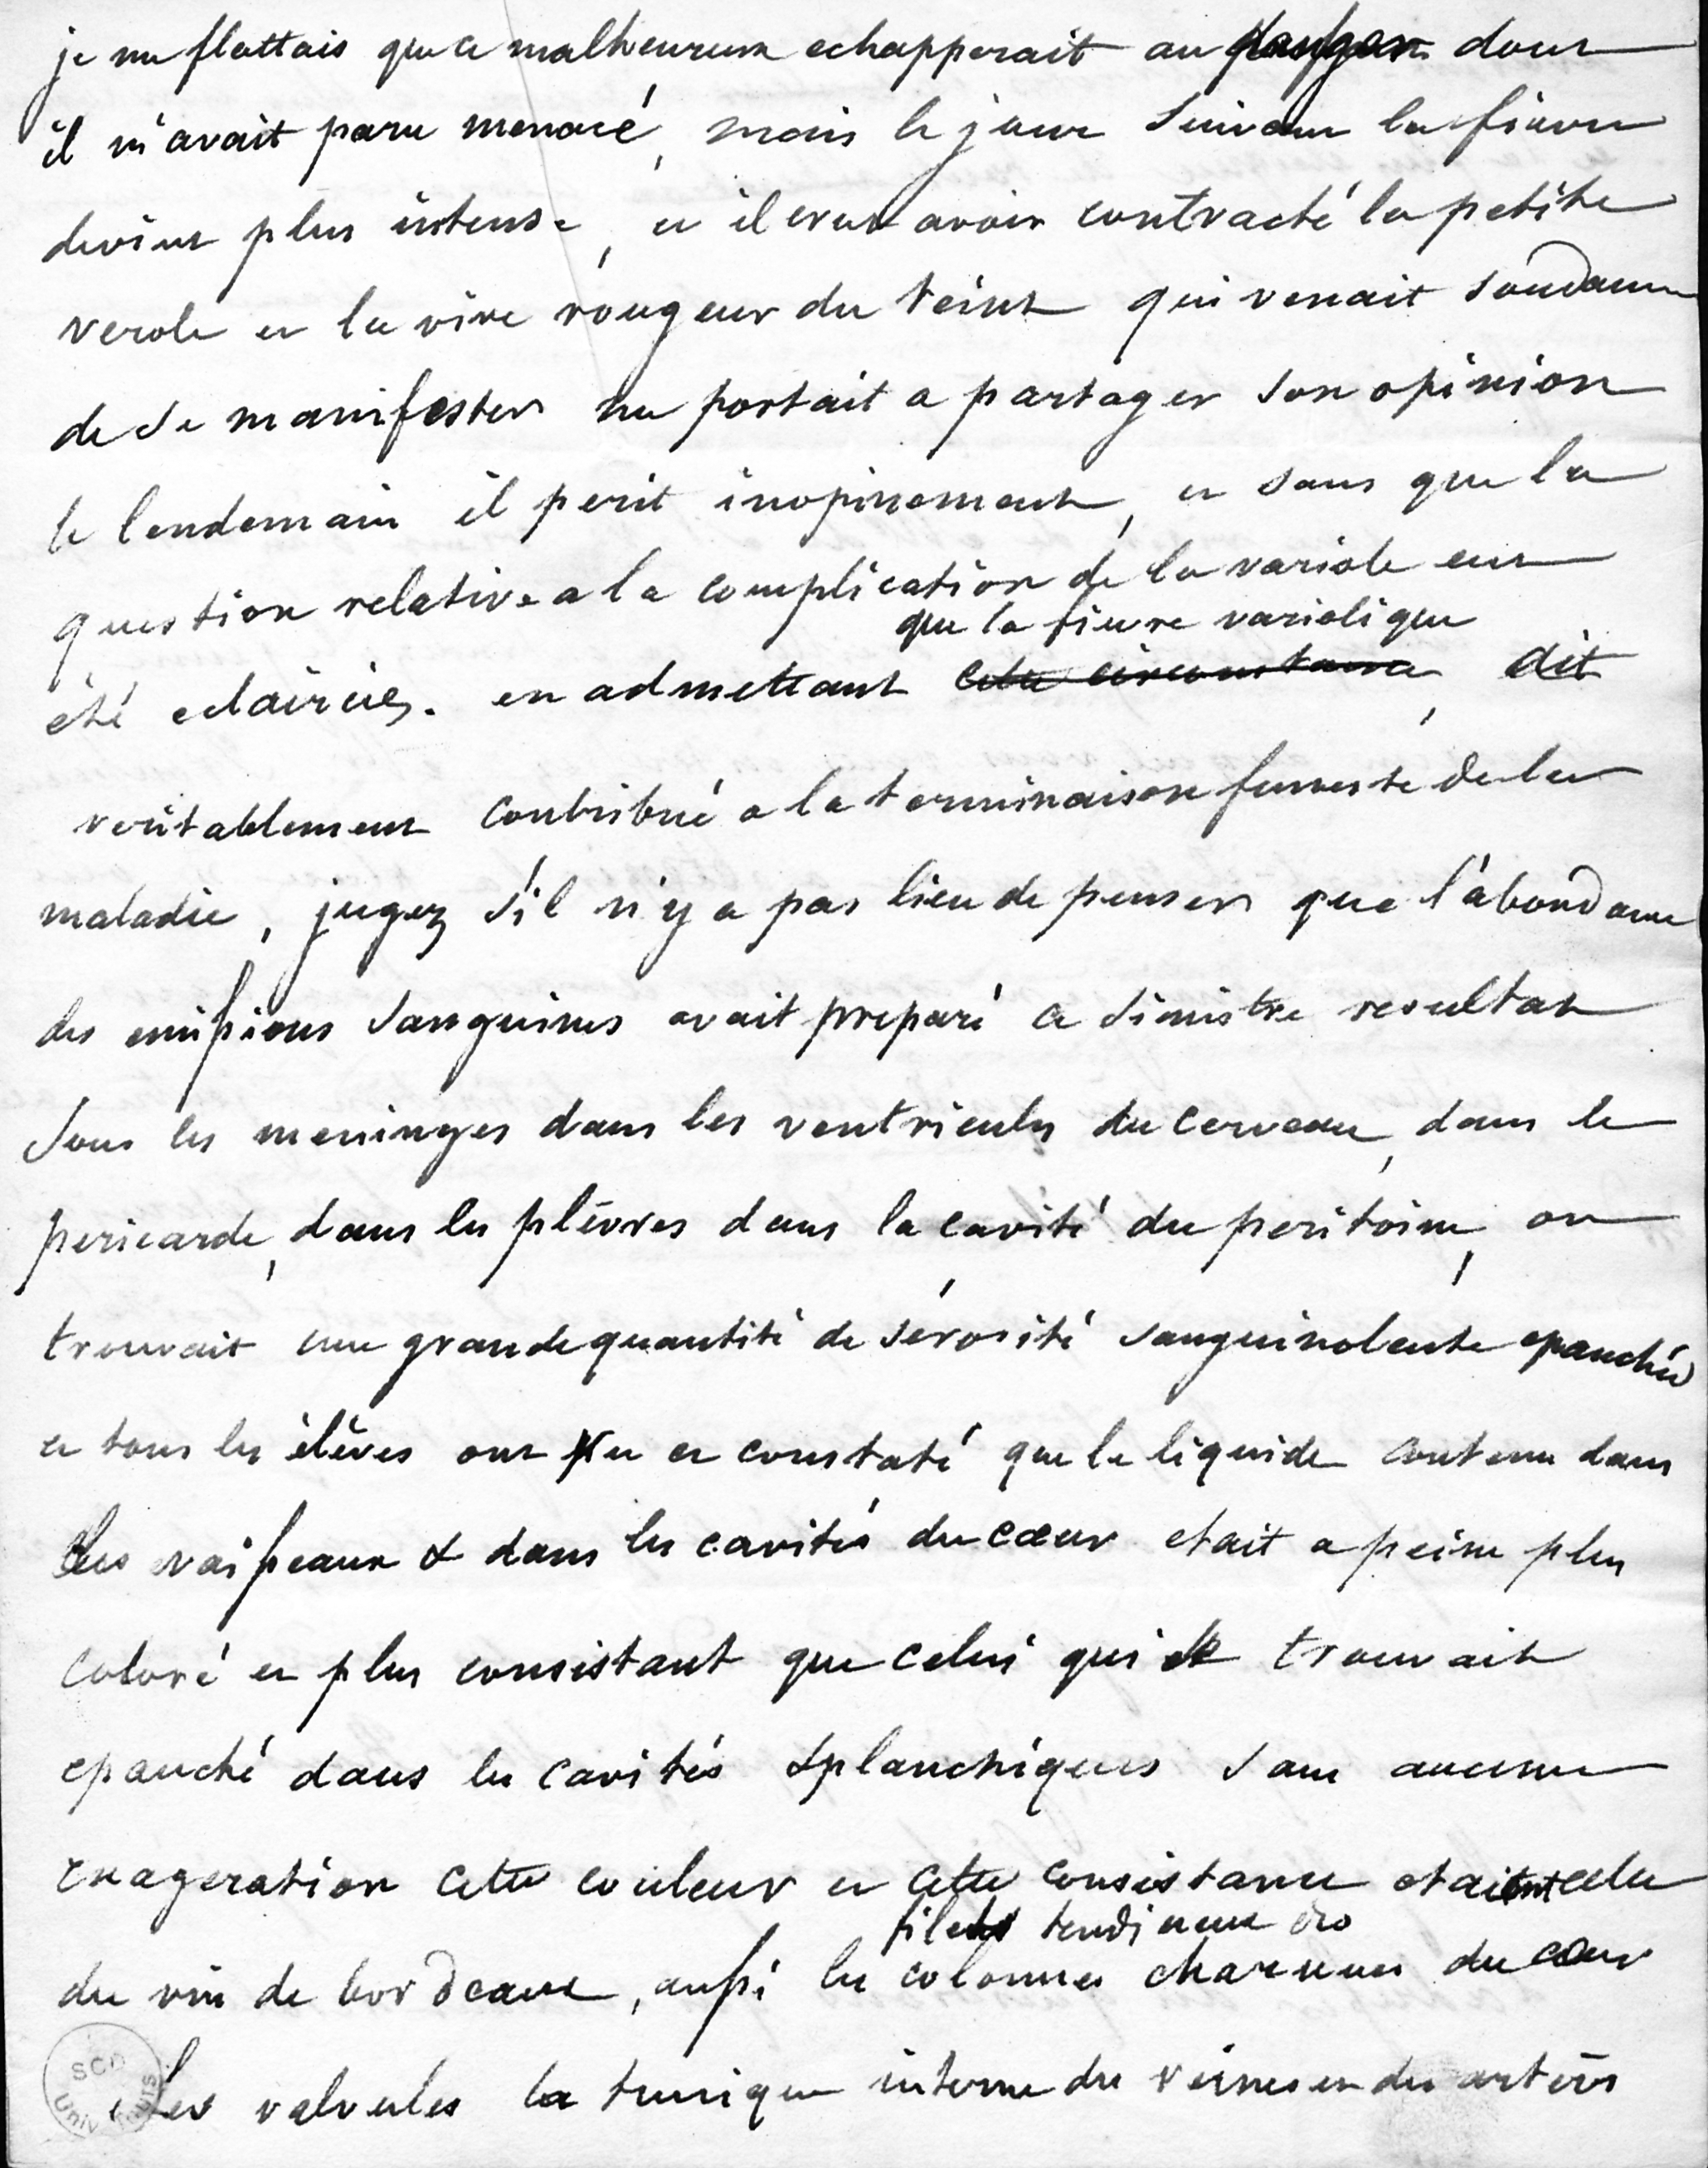 je me flattais que ce malheureux echapperait au danger dont
il m'avait paru menacé, mais le jour suivant la fievre
devint plus intense, et il crut avoir contracté la petite
verole et la vive rougeur du teint qui venait soudain
de se manifester me portait a partager son opinion
le lendemain il perit inopinement, et sans que la
question relative a la complication de la variole eut
que la fievre variolique
été eclaircie. en admettant cette circonstance, dit
veritablement contribué a la terminaison funeste de la
maladie, jugez s'il n'y a pas lieu de penser que l'abondance
des emissions sanguines avait preparé ce sinistre resultat
Sous les meninges dans les ventricules du cerveau, dans le
pericarde, dans les plèvres dans la cavité du peritoine, on
trouvait une grande quantité de sérosité sanguinolente epanchée
et tous les élèves ont vu et constaté que le liquide contenu dans
les vaisseaux & dans les cavités du cœur etait a peine plus
coloré et plus consistant que celui qui se trouvait
epanché dans les cavités splanchniques sans aucune
exageration cette couleur et cette consistance etaient celle
filets tendineux des
du vin de bordeaux, aussi les colonnes charnues du cœur
Les valvules la tunique interne des veines et des artères
SCD
Univ